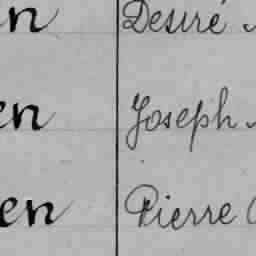 n Desiré
en Joseph
en Pierre